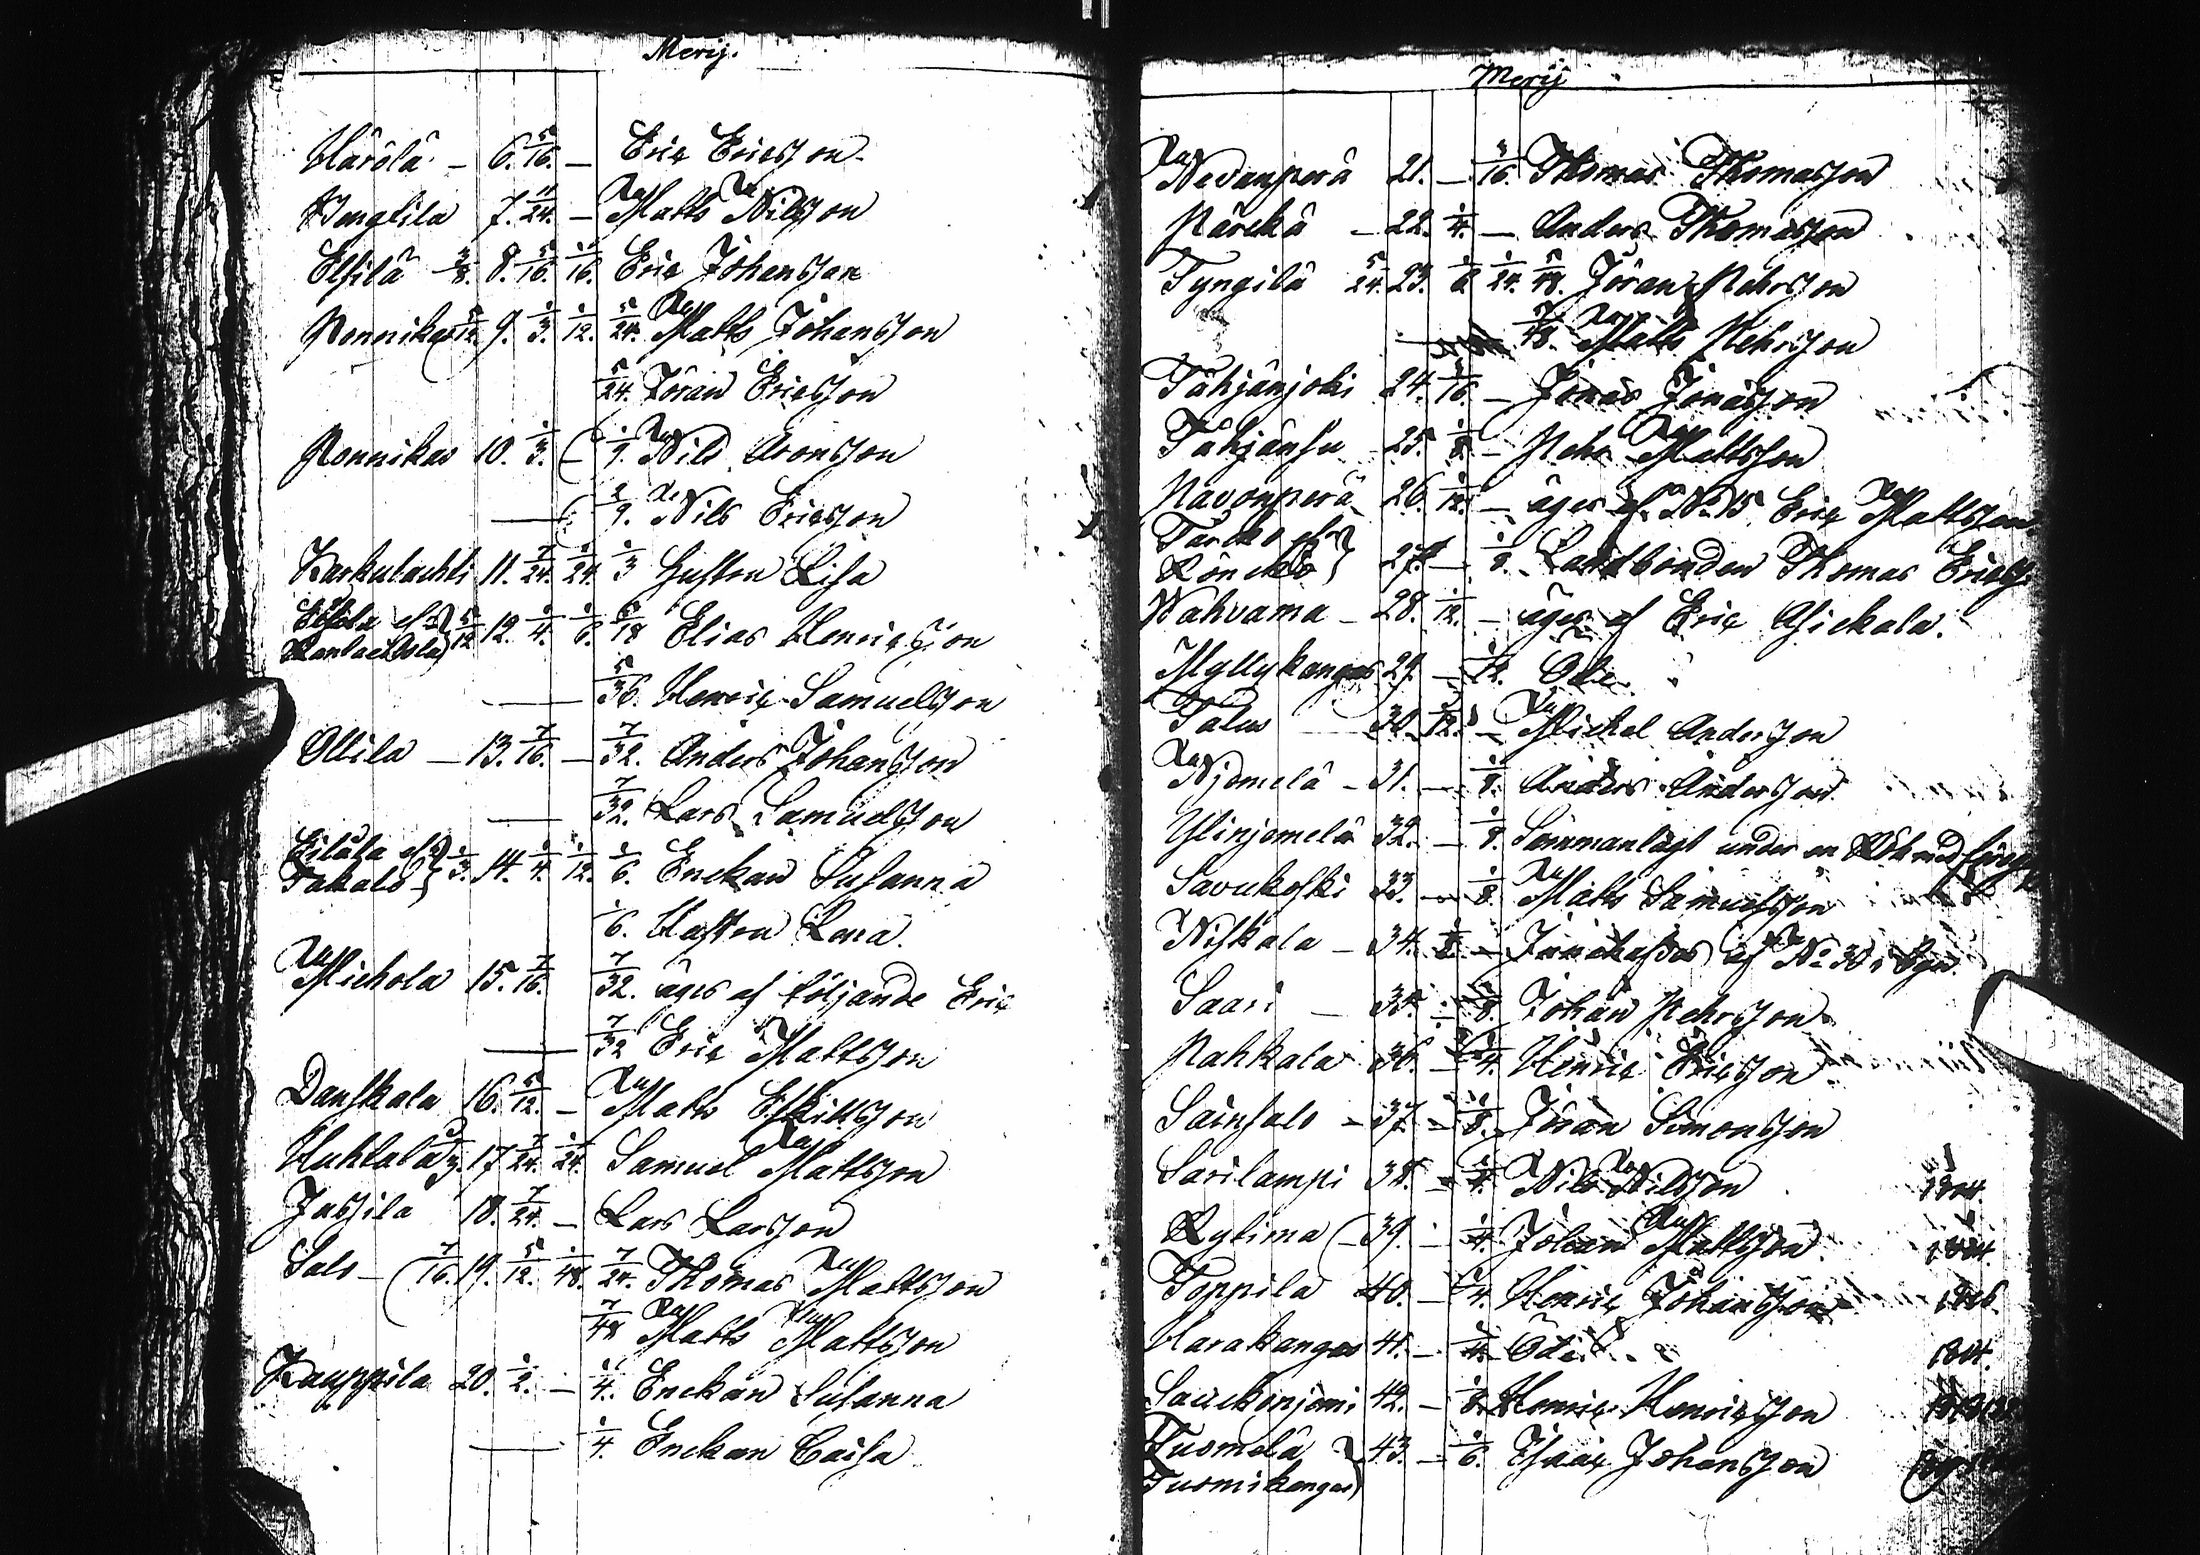 Merij.
Härölä - 6. 5/16. - Eric Ericsson
Bengtila 7. 11/24. - Matts Nilsson
Elfilä 3/8. 8. 5/16. 1/16. Eric Johansson
Pennikas 5/12. 9. 1/3. 1/12. 5/24. Matts Johansson
5/24. Jöran Ericsson
Pennikas 10. 1/3. 1/9. Nils Aronsson
2/9. Nils Ericsson
Karkulachti 11. 7/24. 1/24. 1/3 Hustru Lisa
5/12 12. 1/4. 1/6. 5/18 Elias Henricsson
5/36. Henric Samuelsson
Ollila - 13. 7/16. - 7/32. Anders Johansson
7/32. Lars Samuelsson
Eilälä eller Takalo 1/3. 14. 1/4. 1/12. 1/6. Enckan Susanna
1/6. Hustru Lena
Michola 15. 7/16. 7/32. äges af följande Eric
7/32 Eric Mattsson
Danskala 16. 5/12. - Matts Eskilsson
Huhtala 1/3. 17 7/24. 1/24. Samuel Mattsson
Jussila 18. 7/24. - Lars Larsson
Salo - 7/16. 19. 5/12. 1/48. 7/24. Thomas Mattsson
7/48 Matts Mattsson
Kauppila 20. 1/2. - 1/4. Enckan Susanna
1/4. Enckan Caisa
Merij
Nevanperä 21. - 3/16. Thomas Thomasson
Pärckä - 22. 1/4. - Anders Thomasson
Tyngilä 5/24. 23. 1/6. 1/24. 5/48. Jöran Pehrsson
5/48. Matts Pehrsson
Tähjänjoki 24. 1/16. - Jonas Jonasson
Tähjänsu 25. 1/8. - Pehr Mattsson
Pavonperä 26. 1/12. - äges af No 15 Eric Mattsson
27. - 1/8. Landbonden Thomas Ericss
Wahvama - 28. 1/12. - äges af Eric Michola.
Myllykangas 29. - 1/12. Öde
Talus 30. 1/12. - Michel Andersson
Njemelä - 31. - 1/8. Anders Andersson
Ylinjemelä 32. - 1/8. Sammanlagt under en Rök med
Savukoski 33. - 1/8. Matts Samuelsson
Niskala - 34. 1/8. - af No 30 i
Saari - 35. 1/8. Johan Pehrsson
Pahkala 36. - 1/4. Henric Ericsson
Sainsalo - 37. - 1/8. Jöran Simonsson
Sarilampi 38. - 1/4. Nils Nilsson 1804.
Rytima - 39. - 1/4. Johan Mattsson 1804.
Toppila 40. - 1/4. Henric Johansson 1806.
Harakangas 41. - 1/4. Öde 1804.
Sauckonjemi 42. - 1/8. Henric Henricsson
Tuomela Tuomikangas 43. - 1/6. Esaias Johansson